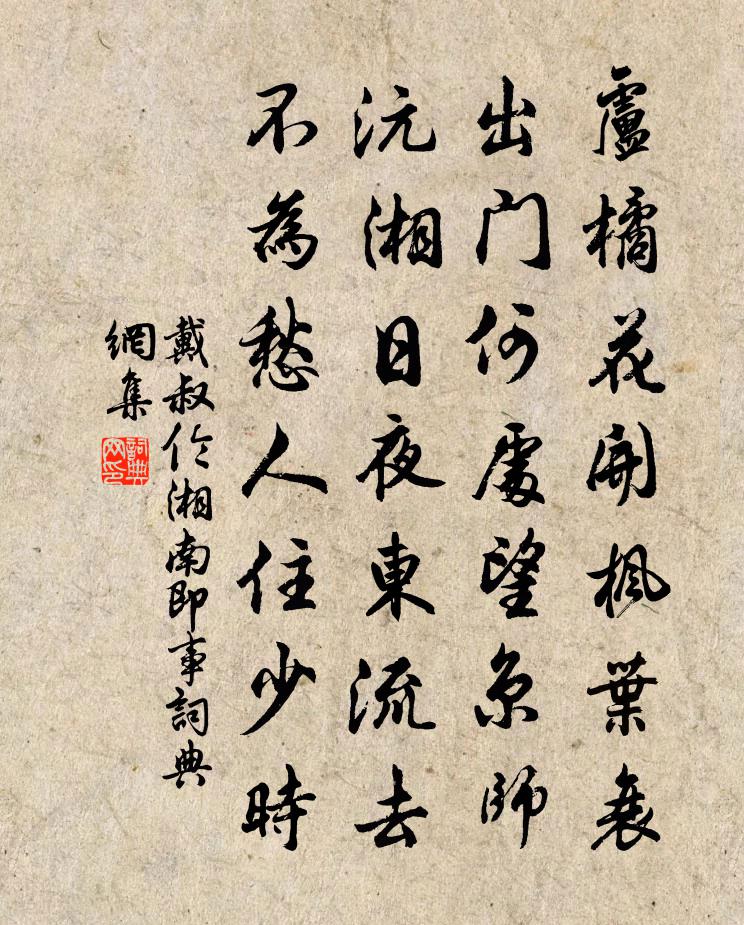 盧橘花開楓葉衰
出门何處望京師
沅湘日夜東流去
不為愁人住少時
戴叔伦湘南即事詞典
網集
詞典
网印